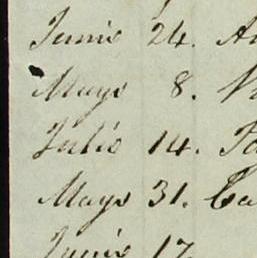 Junio 24.
Mayo 8.
Julio 14.
Mayo 31.
Junio 17